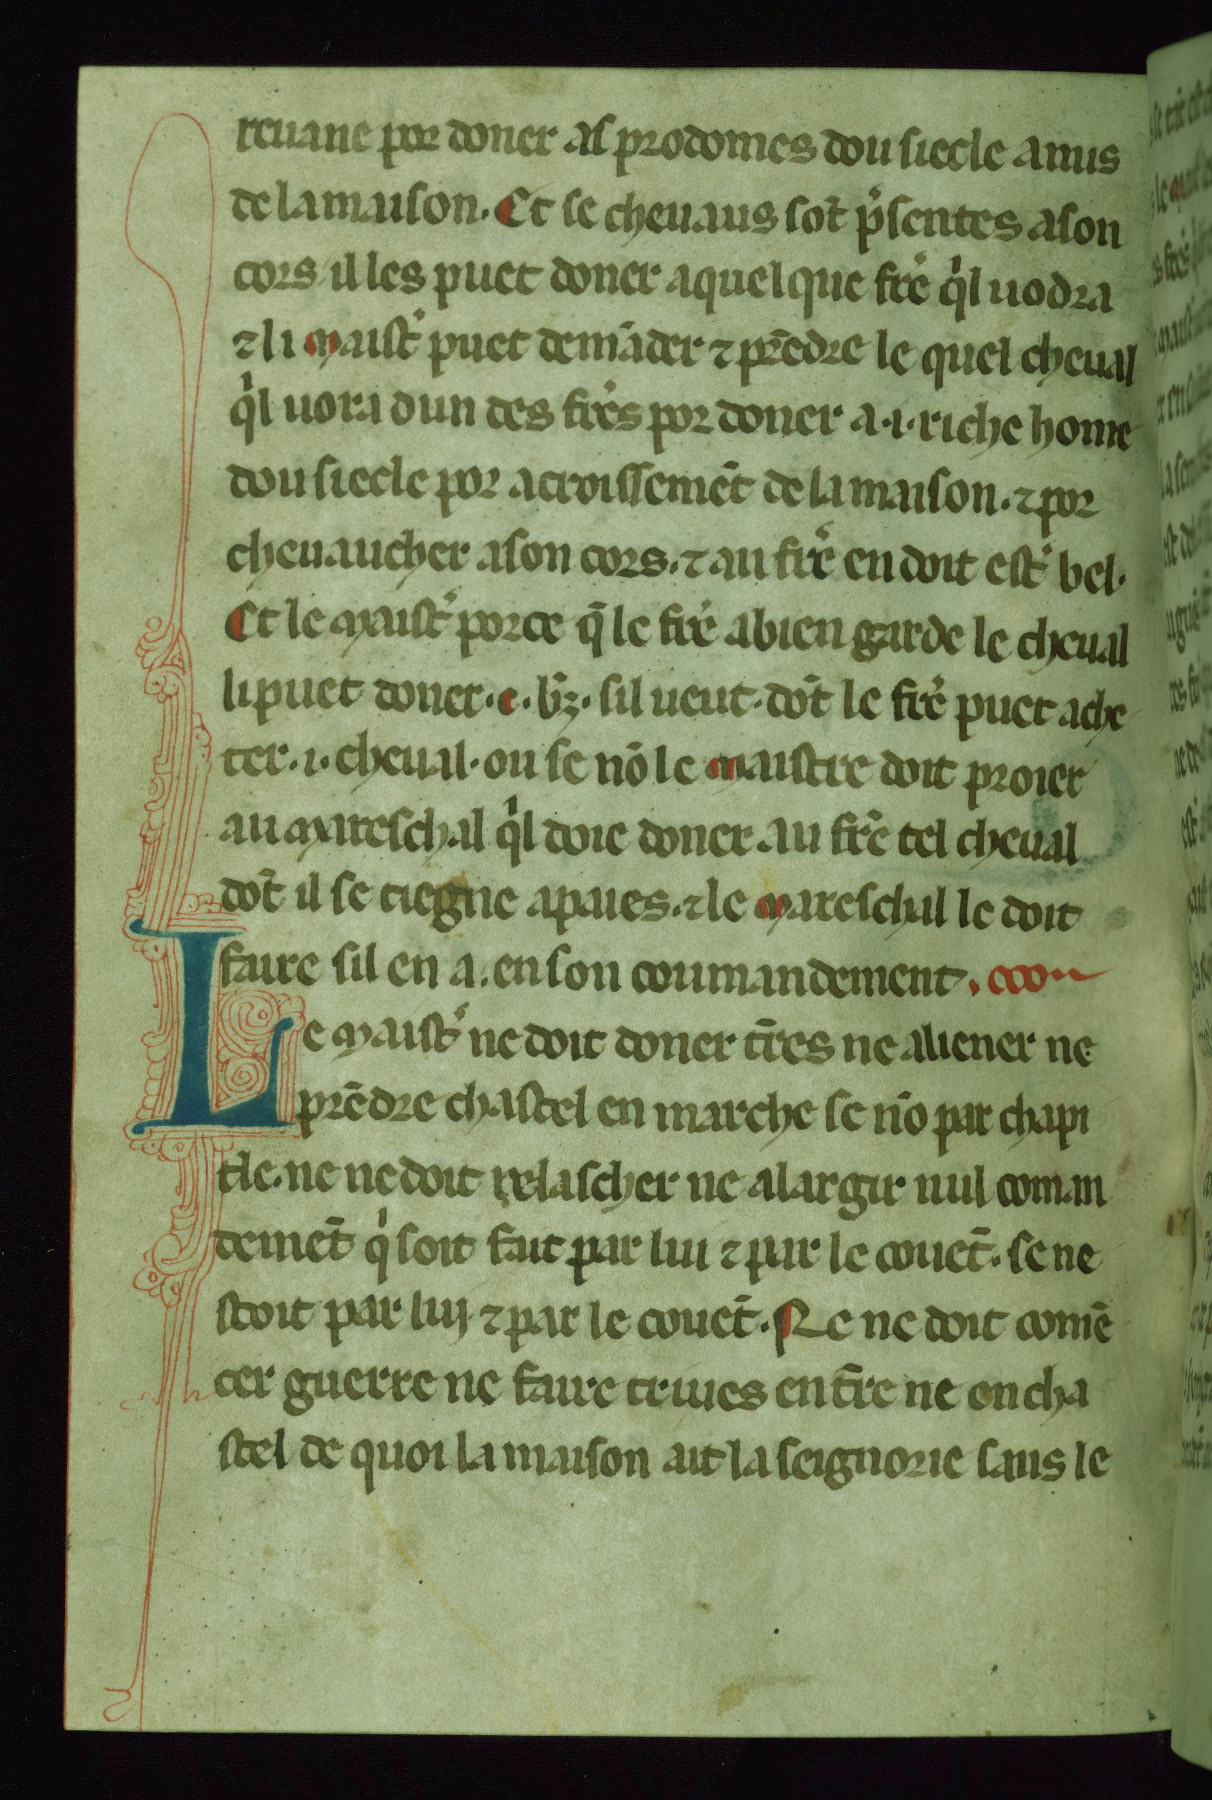 revane por doner as prodomes dou siecle amis
de la maison. Et se chevaus sot̄ p̾sentes a son
cors il les puet doner a quel que fre̾ qͥl vodra
⁊ li maist̾ puet demāder ⁊ prēdre le quel cheval
qͥl vora dun des fre̾s por doner a .i. riche home
dou siecle por acroissemēt de la maison. ⁊ por
chevaucher a son cors. ⁊ au fre̾ en doit est̾ bel.
Et le maist̾ por ce q̄ le fre̾ a bien garde le cheval
li puet doner .c. bz̄. sil veut. dot̄ le fre̾ puet ache
ter .i. cheval. ou se nō le maistre doit proier
au mareschal qͥl doie doner au fre̾ tel cheval
dot̄ il se tiegne apaies. ⁊ le mareschal le doit
faire sil en a. en son coumandement.
Le maist̾ ne doit doner tr̄es ne aliener ne
prēdre chastel en marche se nō par chapi
tle. ne ne doit relascher ne alargir nul coman
demet̄ qͥ soit fait par lui ⁊ par le covet̄. se ne
stoit par lui ⁊ par le covet̄. Ne ne doit comē
cer guerre ne faire trives en tr̄e ne en cha
stel de quoi la maison ait la seignorie sans le